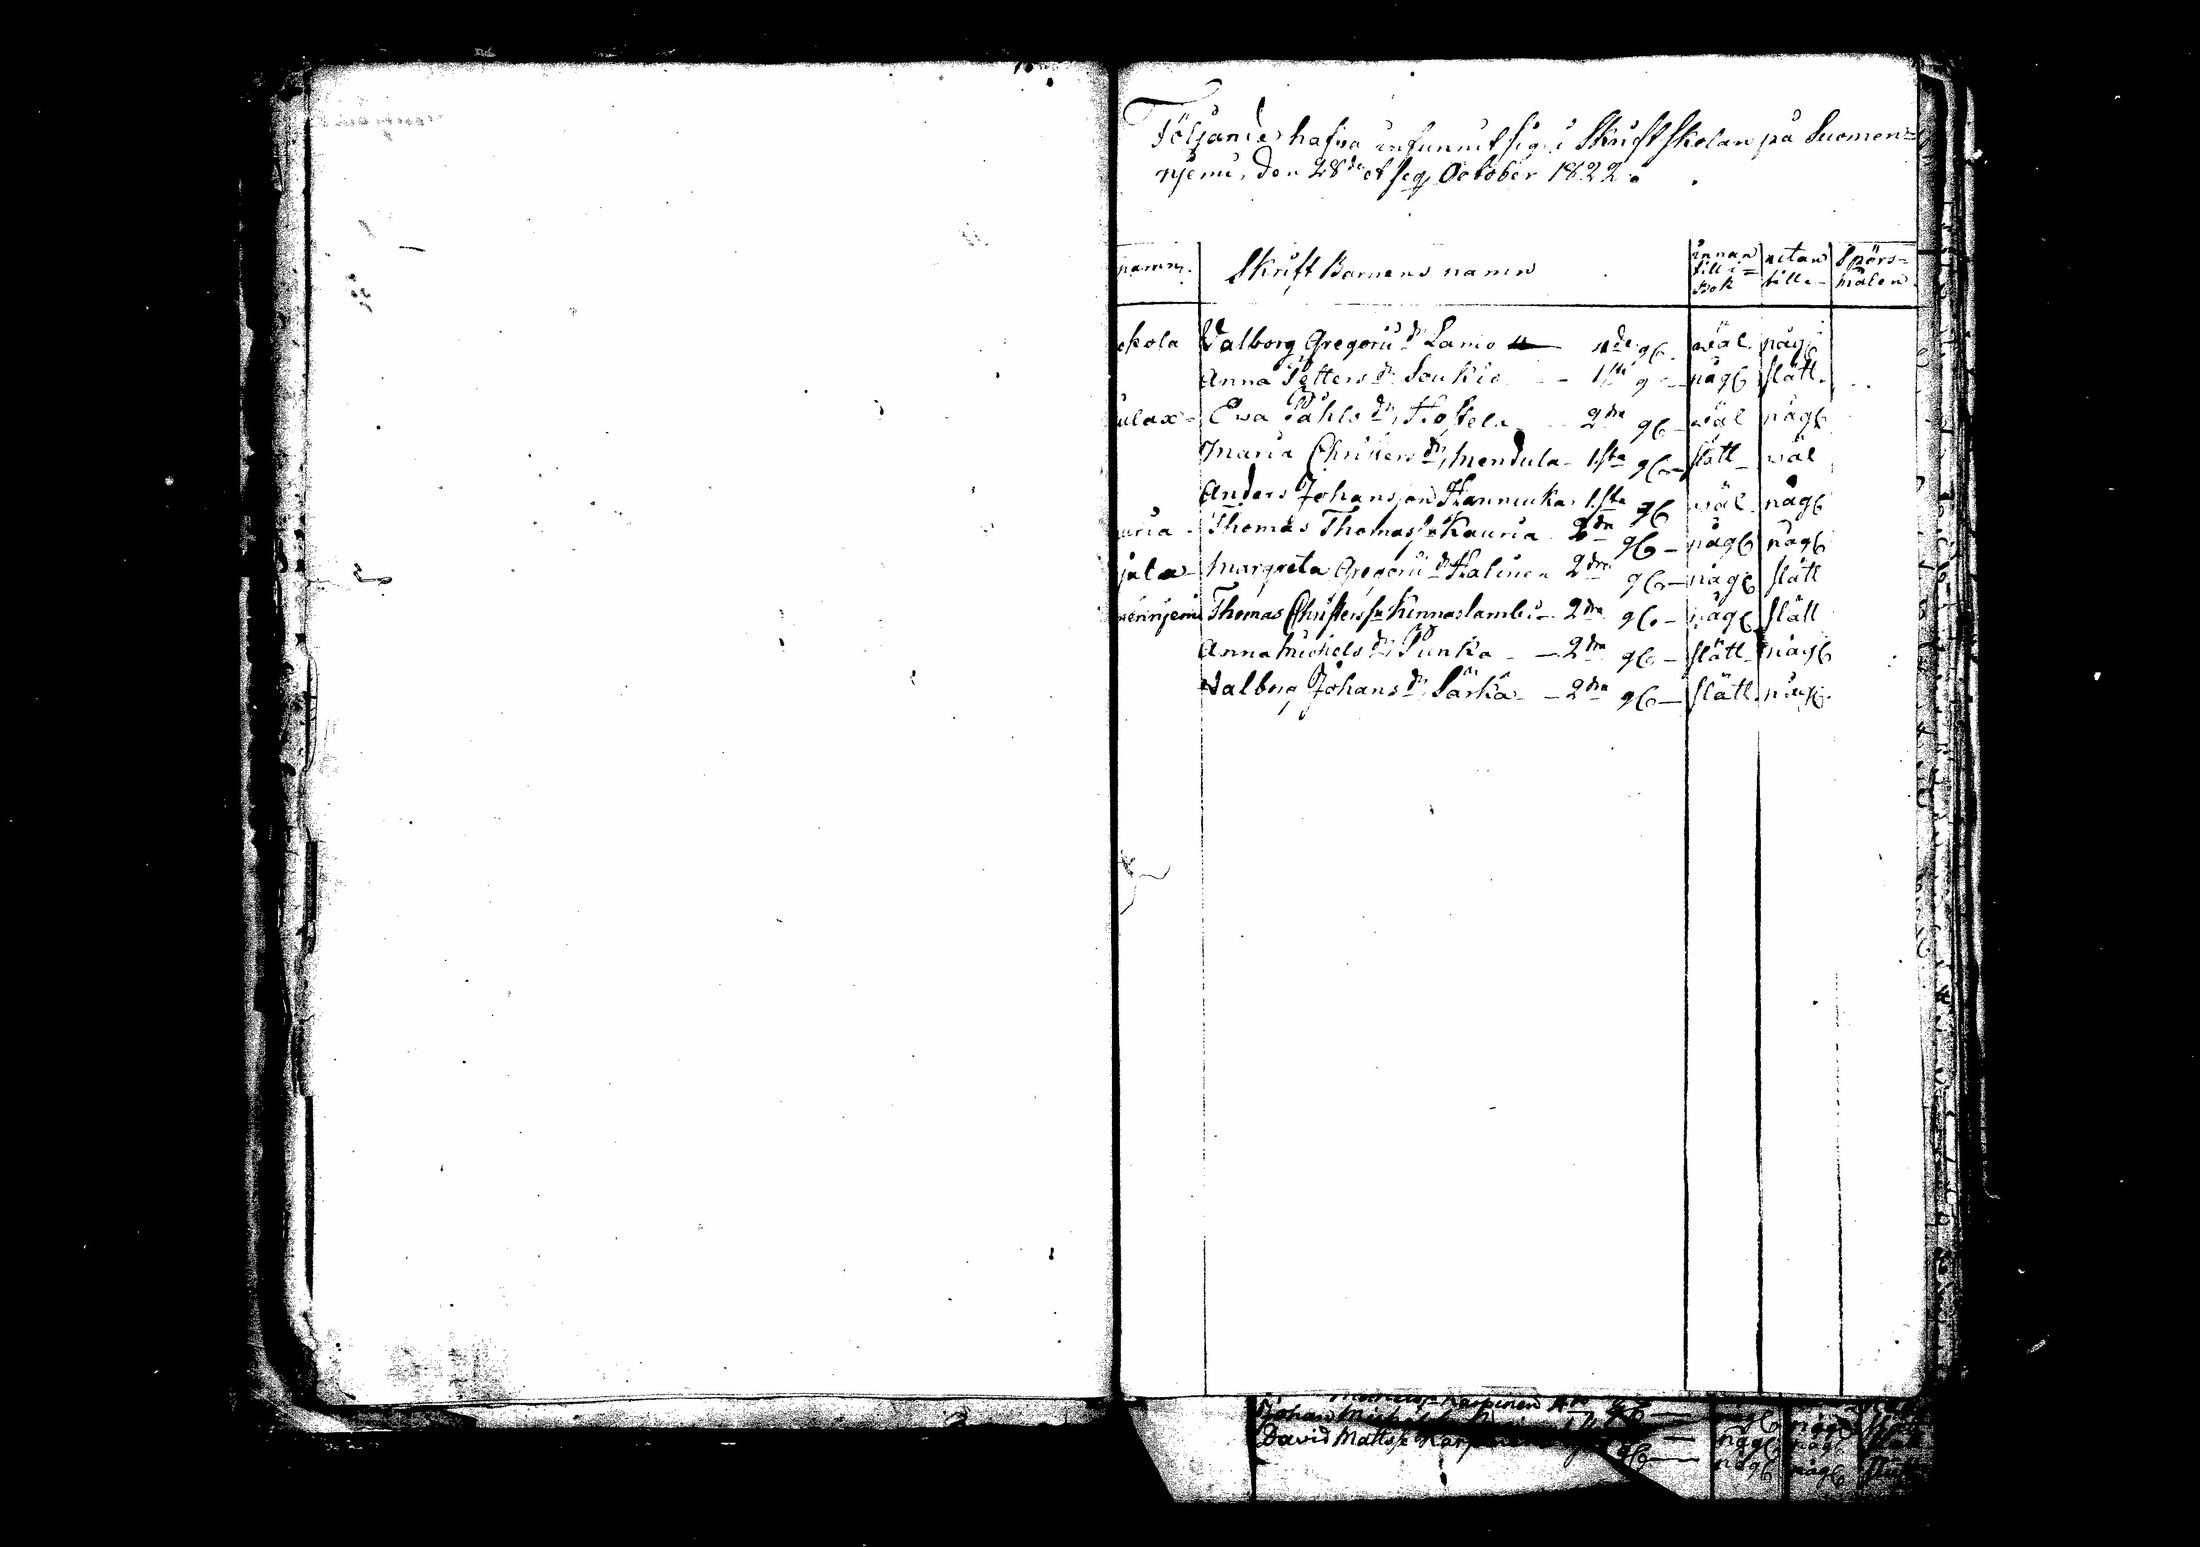 Följande hafva infunnit sig i Skriftskolan på Suomen=
njemi, den 28de et seq October 1822.
namn. Skrift Barnens namn innan till i Bok utan till Spörs=målen
Valborg Gregorii dr Lamo 4de gg wäl någ
Anna Petters dr Soukio 1sta g någ slätt
ulax Ewa Påhls dr 2dra gg wäl någ
Maria Christers dr Mendula 1sta gg slätt wäl
Anders Johansson Hannuka 1sta gg wäl någ
uria Thomas Thomass Kauria 2dra gg någ någ
jala Margreta Gregorii dr Halinen 2dra gg någ slätt
mennjemi Thomas Christers sn Kinnaslambi 2dra gg någ slätt
Anna Michels dr Punka 2dra gg slätt någ
Valborg Johans dr Särkä 2dra gg slätt någ
Karpinen
Johan någ någ
David Matts någ någ